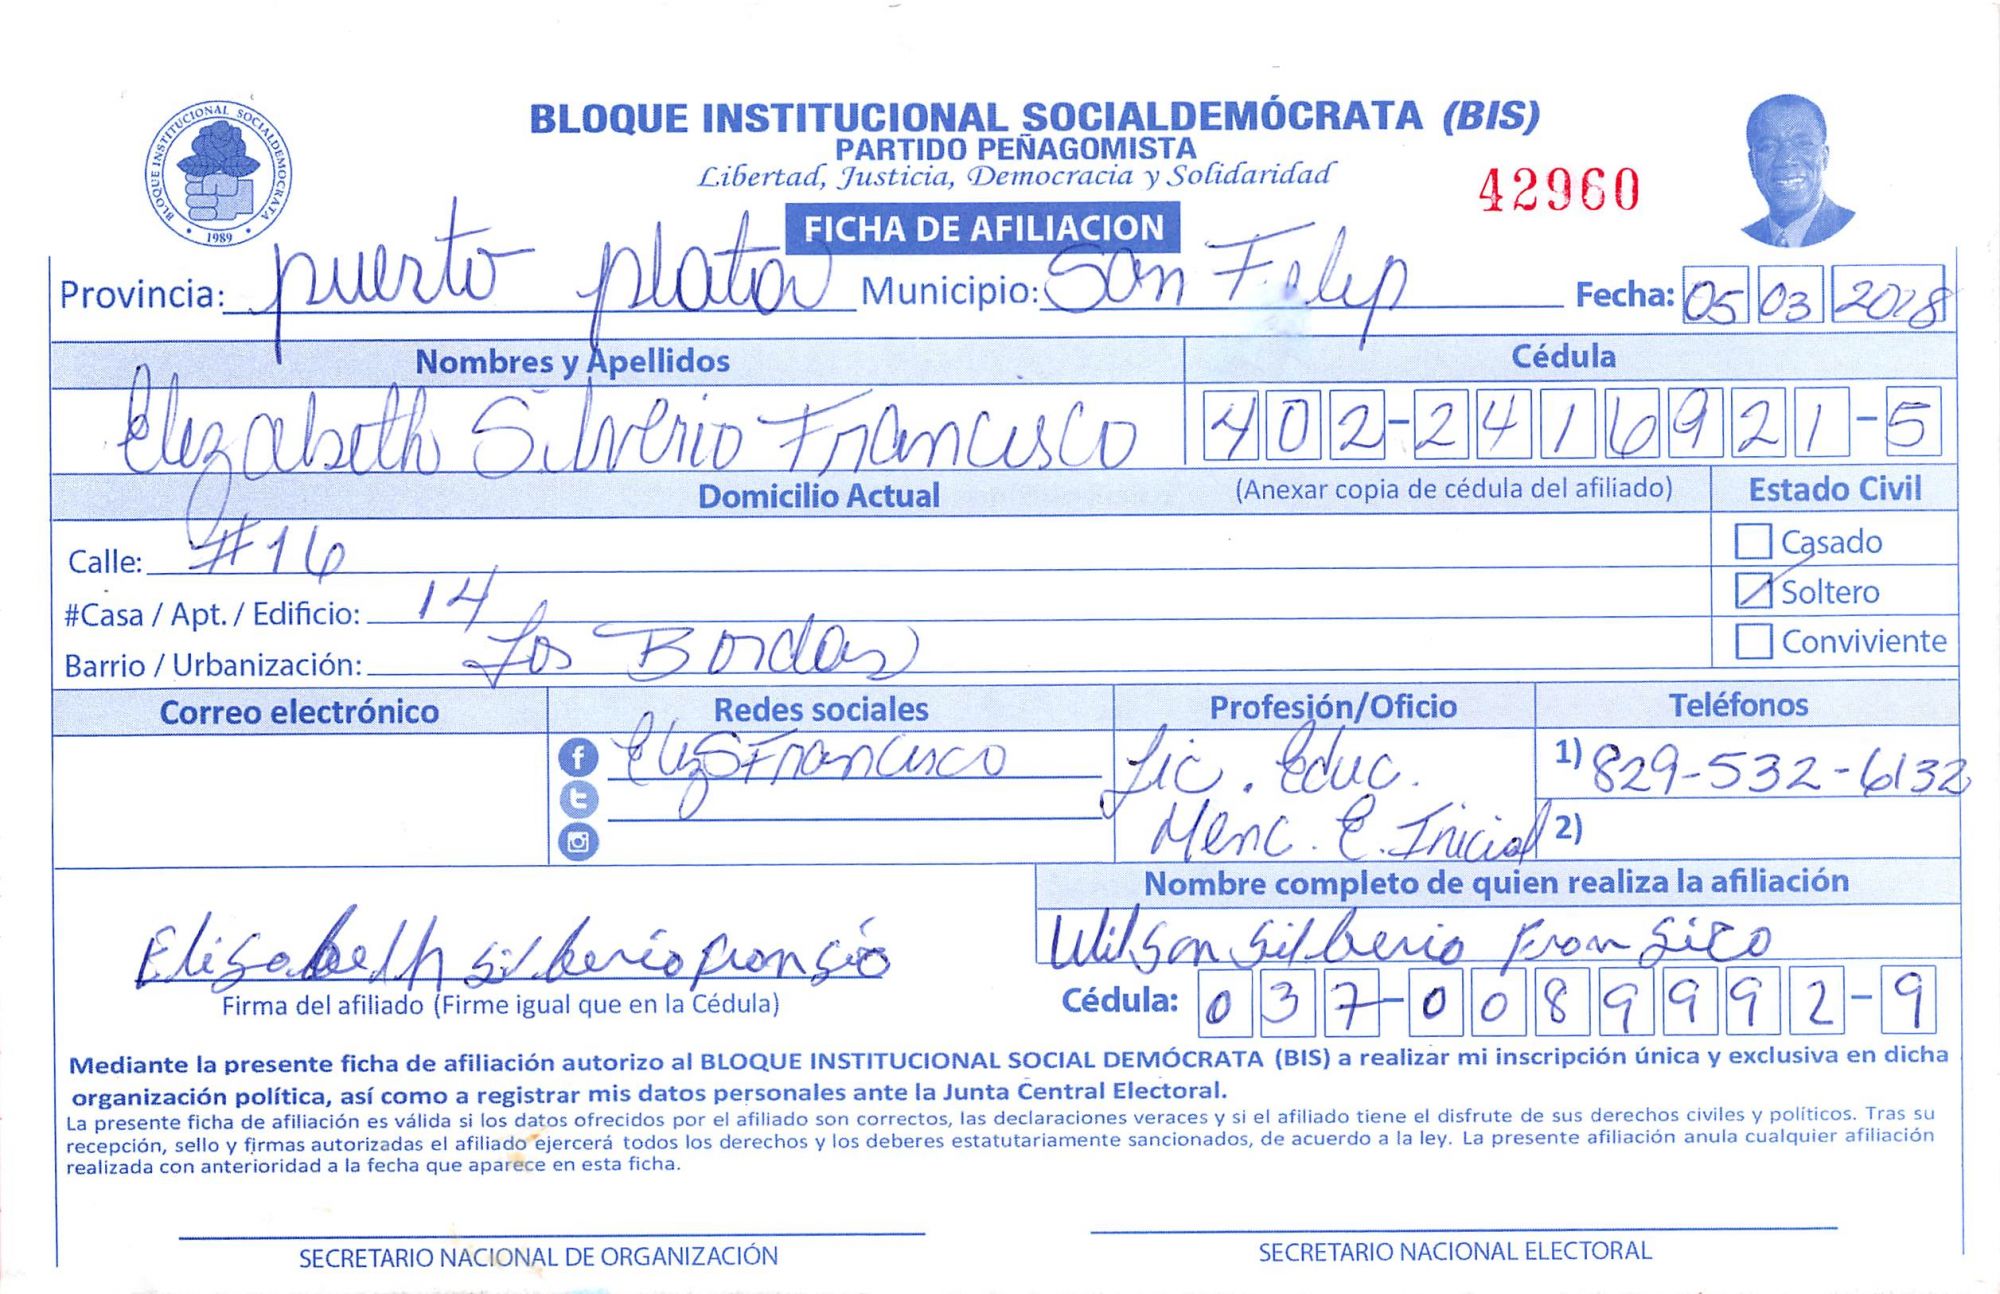 BLOQUE INSTITUCIONAL SOCIALDEMÓCRATA (BIS)
PARTIDO PEÑAGOMISTA
Libertad, Justicia, Democracia y Solidaridad
42960
BLOQUE INSTITUCIONAL SOCIALDEMOCRATA
1989
FICHA DE AFILIACION
Provincia: puerto plata Municipio: San Felip Fecha: 05 03 2018
Nombres y Apellidos Cédula
Elizabeth Silverio Francisco 402-2416921-5
Domicilio Actual (Anexar copia de cédula del afiliado) Estado Civil
Calle: #16 Casado
#Casa / Apt. / Edificio: 14 Soltero
Barrio / Urbanización: Los Bordas Conviviente
Correo electrónico Redes sociales Profesión/Oficio Teléfonos
ElizSFrancisco Lic. Educ. 1) 829-532-6132
Menc. E. Inicial 2)
Nombre completo de quien realiza la afiliación
Elisabelh silberio fransio Wilson Silberio Fransico
Firma del afiliado (Firme igual que en la Cédula) Cédula: 037-0089992-9
Mediante la presente ficha de afiliación autorizo al BLOQUE INSTITUCIONAL SOCIAL DEMÓCRATA (BIS) a realizar mi inscripción única y exclusiva en dicha
organización política, así como a registrar mis datos personales ante la Junta Central Electoral.
La presente ficha de afiliación es válida si los datos ofrecidos por el afiliado son correctos, las declaraciones veraces y si el afiliado tiene el disfrute de sus derechos civiles y políticos. Tras su
recepción, sello y firmas autorizadas el afiliado ejercerá todos los derechos y los deberes estatutariamente sancionados, de acuerdo a la ley. La presente afiliación anula cualquier afiliación
realizada con anterioridad a la fecha que aparece en esta ficha.
SECRETARIO NACIONAL DE ORGANIZACIÓN SECRETARIO NACIONAL ELECTORAL